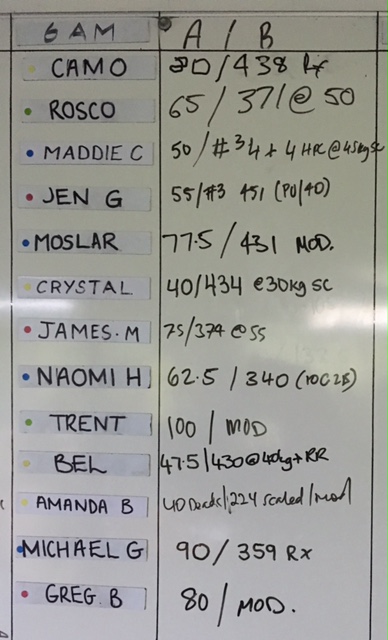 6 AM A / B
CAMO 80/438 Rx
ROSCO 65/371@50
MADDIE C 50/#3 4 + 4 HPC @45kg SC
JEN G 55/#3 451 (PU/40)
MOSLAR 77.5/431 MOD.
CRYSTAL 40/434 @30kg SC
JAMES.M 75/374@55
NAOMI H 62.5/340
TRENT 100/MOD
BEL 47.5/430@40kg+RR
AMANDA B 40 224 scaled/mod
MICHAEL G 90/359 Rx
GREG.B 80/MOD.